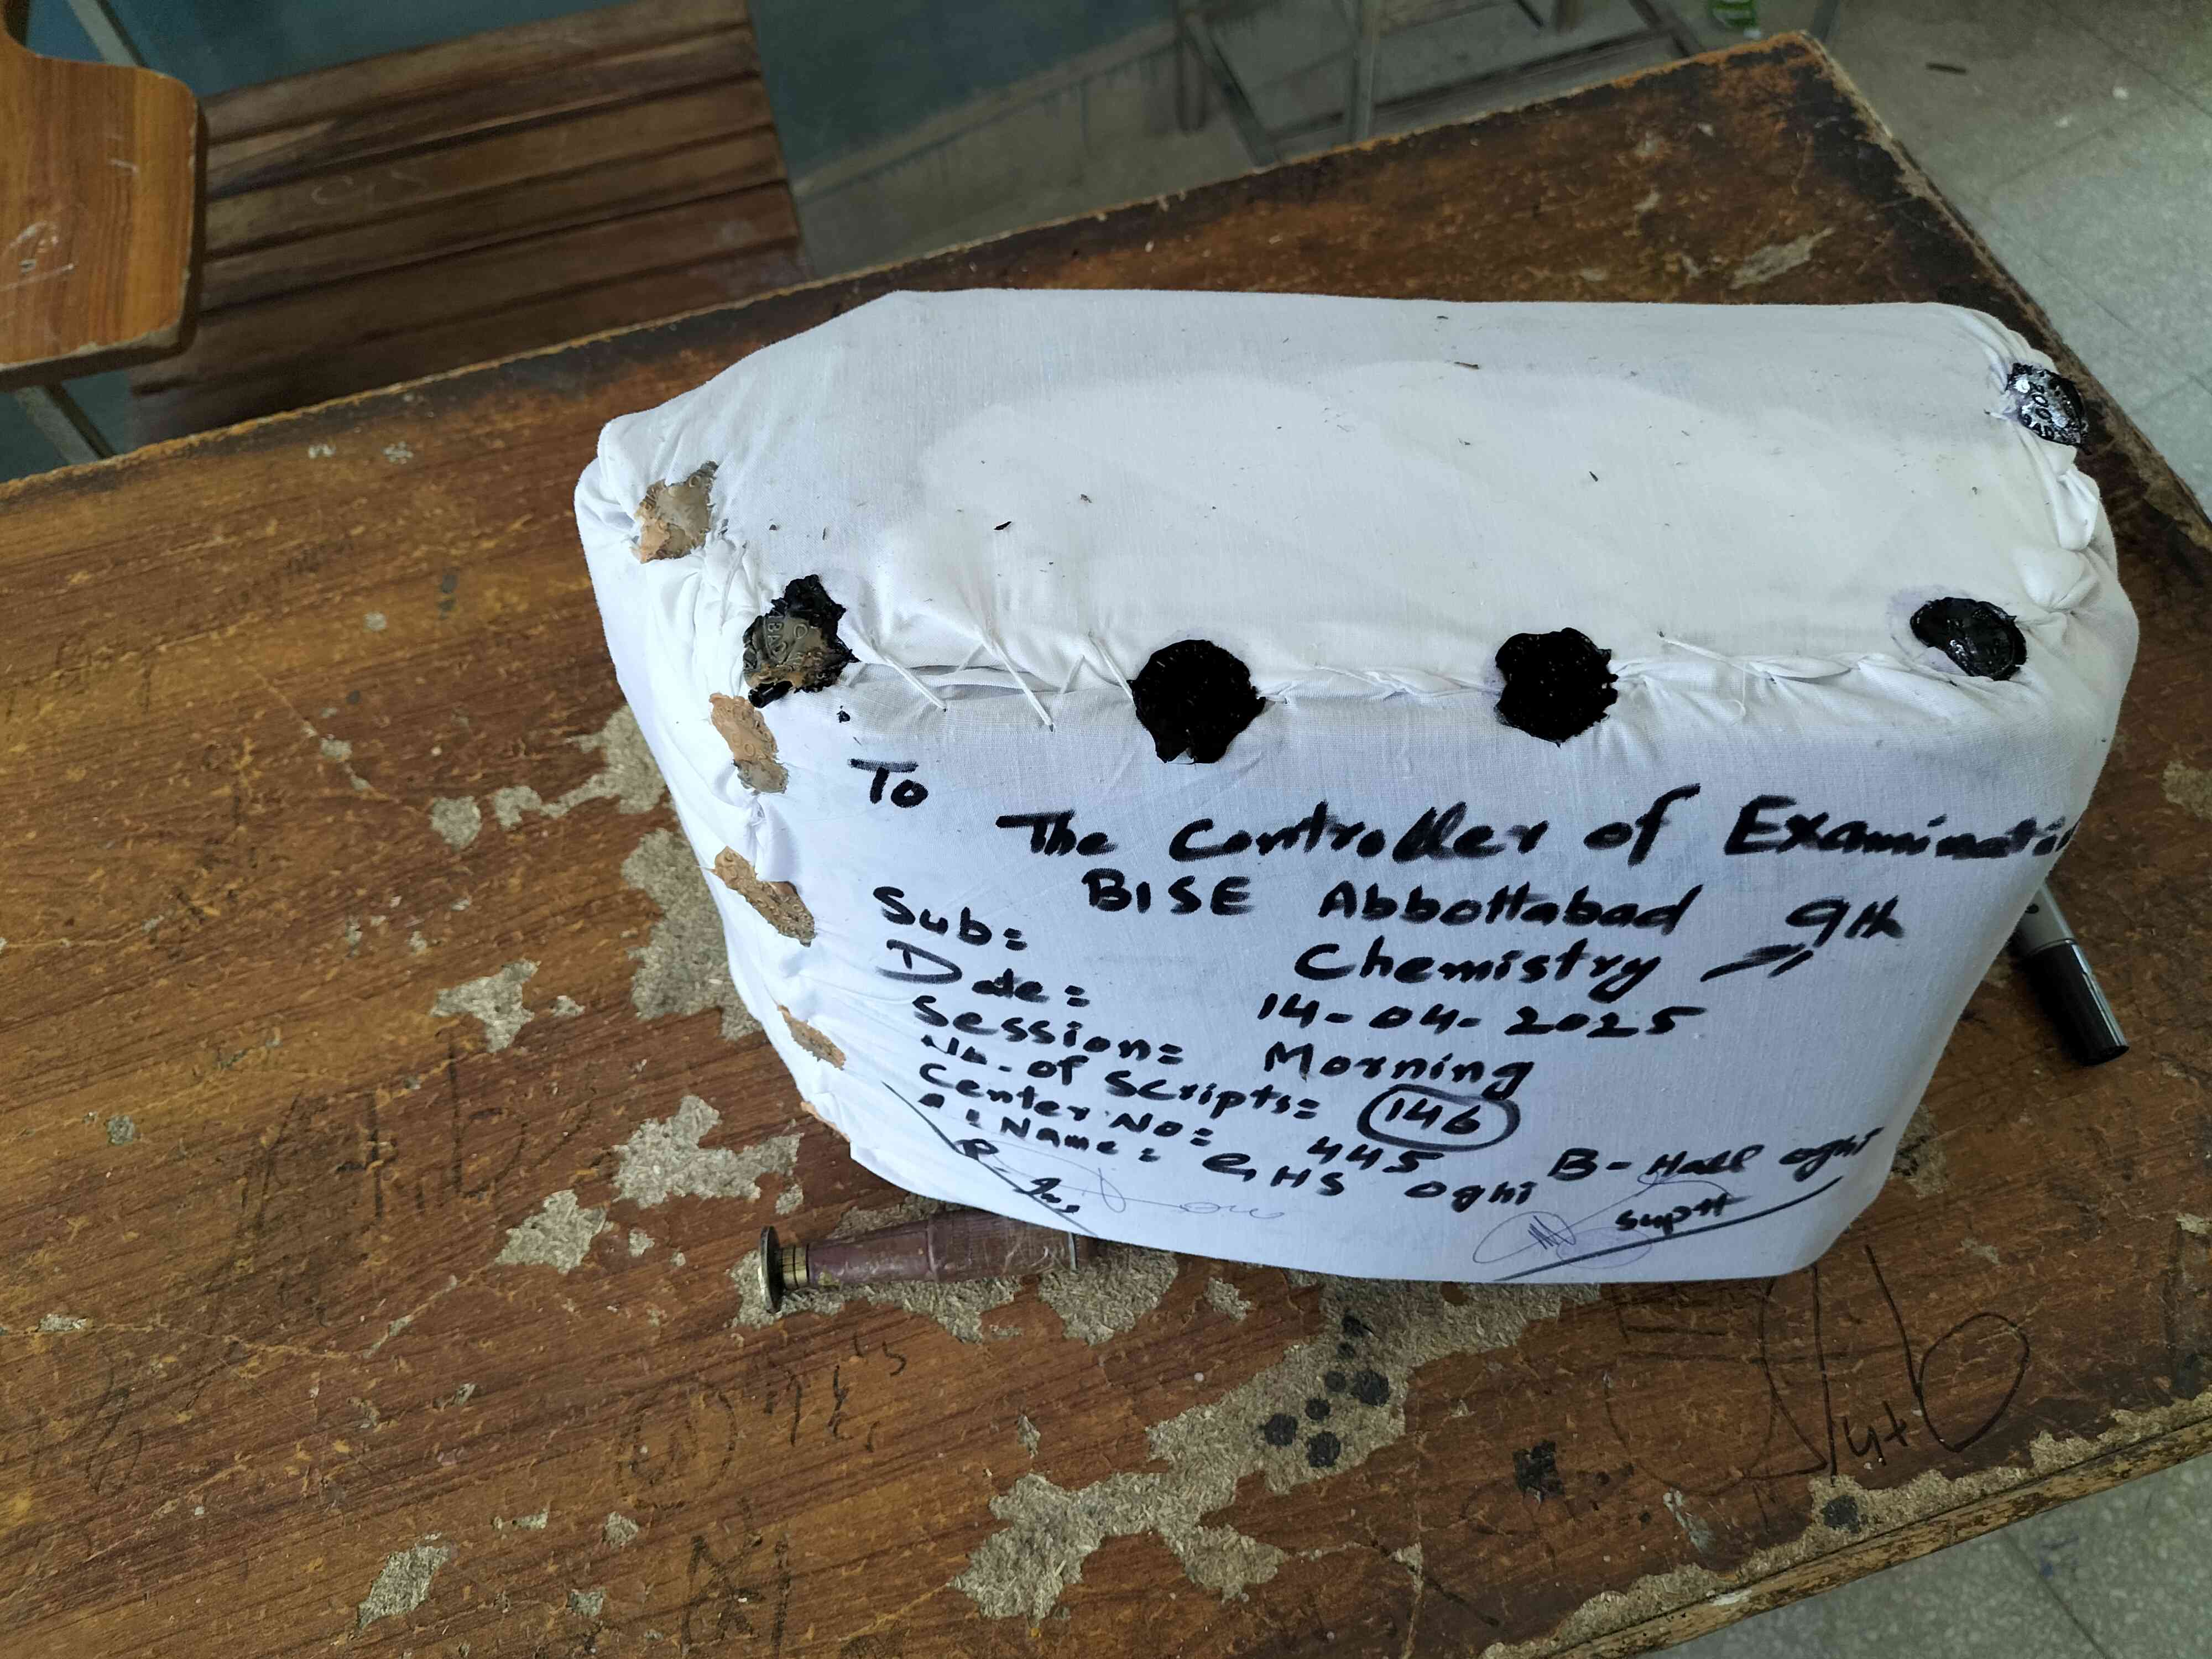 To
The Controller of Examinatio
BISE Abbottabad
Sub= Chemistry 9th
Date= 14-04-2025
Session= Morning
No. of Scripts= 146
Center No= 445
" " Name= GHS oghi B-Hall oghi
Suptt